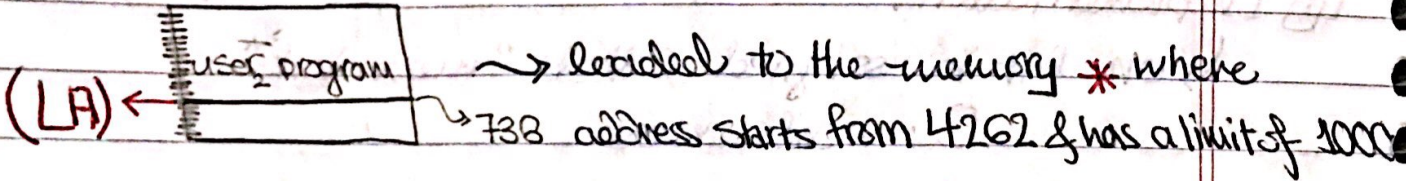 user program → loaded to the memory * where
(LA) ← → 738 address starts from 4262 & has a limit of 1000